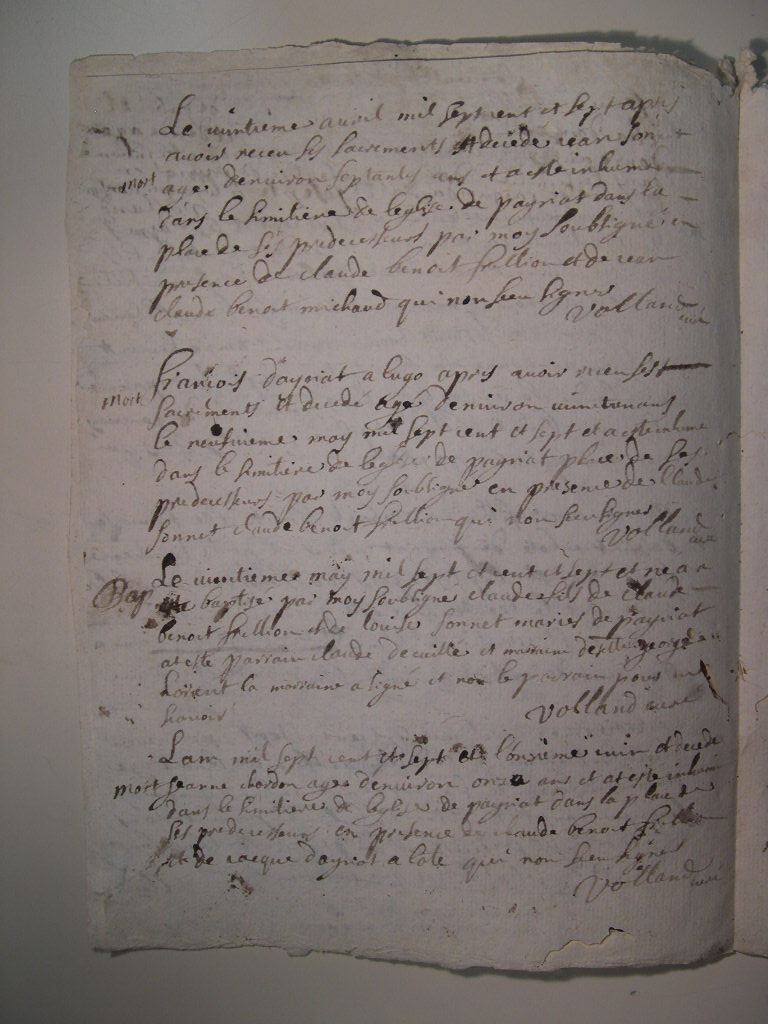 Le vintieme auril mil sept cent et sept apres
mort
avoir receu ses sacrements et decede iean sonnet
age denviron septantes ans et a este inhume
dans le simitiere de leglise de payriat dans la
place de ses predecesseurs par moy soubsigne en
presence de claude benoit frillion et de iean
claude benoit michaud qui non sceu signer
Volland curé
mort
francois dayriat a lugo apres auoir receu ses
sacrements et decede age denviron vint
le neufvieme may mil sept cent et sept et a este inhume
dans le simitiere de leglise de payriat place de ses
predecesseurs par moy soubsigne en presence de Claude
sonnet claude benoit frillion qui non sceu signer
Volland curé
Bap
Le vintieme may mil sept et cent et sept et ne a a
este baptise par moy soubsigne claude fils de claude
benoit frillion et de louise sonnet maries de payriat
a este parrain claude decuille et marraine george
Lorent la marraine a signé et non le parrain pour ne
scavoir
Volland curé
Lan mil sept cent et sept et lonzieme iuin et decede
mort
Jeanne chordon age denviron onze ans et a este inhume
dans le simitiere de leglise de payriat dans la place de
ses predecesseurs en presence de claude benoit frillion
et de iacque dayriat a lote qui non sceu signer
Volland curé